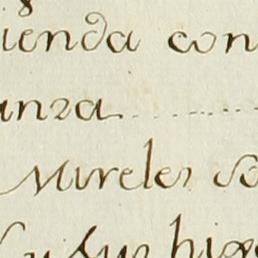 ienda con
anza
Mireles so
y sus hijo